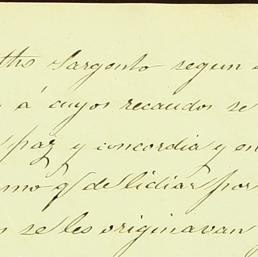 Sargento segun
á cuyos recaudos se
paz y concordia y en
mo q de lidiar por
se les originavan